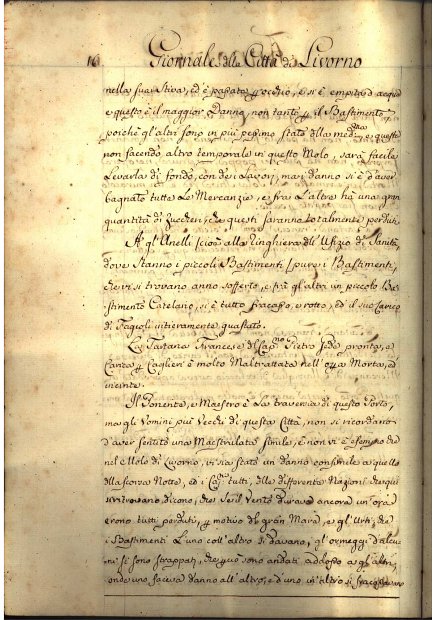 16 Giornale della Città di Livorno
nella sua Stiva, ed è passato p occhio, e si è empito d'acqua
e questo è il maggior Danno, non tanto p il Bastimento
poichè gl'altri sono in più pessimo stato della med.ma e questi
non facendo altro temporale in questo Molo, sarà facile
Levarla di fondo, con dei Lavori, ma il danno si è d'aver
bagnato tutte Le Mercanzie, e frà L'altre hà una gran
quantità di zuccheri, che questi saranno totalmente perduti
A gl'Anelli scioà alla Ringhiera dell'Ufizio di Sanità
dove stanno i piccoli Bastimenti, pure i Bastimenti,
che vi si trovano anno sofferto, e frà gl'altri un piccolo Ba=
stimento Catelano, si è tutto fracassato e rotto, ed il suo carico
di Fagioli intieramente guastato.
La Tartana Francese del Cap.no Pietro pronta, e
Carica p Caglieri è molto Maltrattata nell'Opera Morta, ed
in cinte.
Il Ponente, e Maestro è La traversia di questo Porto,
ma gli Uomini più Vecchi di questa Città, non si ricordano
d'aver sentuto una Maestralata simile, e non vi è esempio che
nel Molo di Livorno, vi sia stato un danno consimile a quello
della scorsa Notte, ed i Cap.ni tutti, delle differente Nazioni che qui
si ritrovano, dicono, che se il Vento durava ancora un'ora
erono tutti perduti, p motivo del gran Mare, e gl'Urti, che
i Bastimenti L'uno coll'altro si davano, gl'ormeggi d'alcu=
ni si sono strappati, che però sono andati addosso a gl'altri,
onde uno faceva danno all'altro, e d'uno in altro si fracassavano